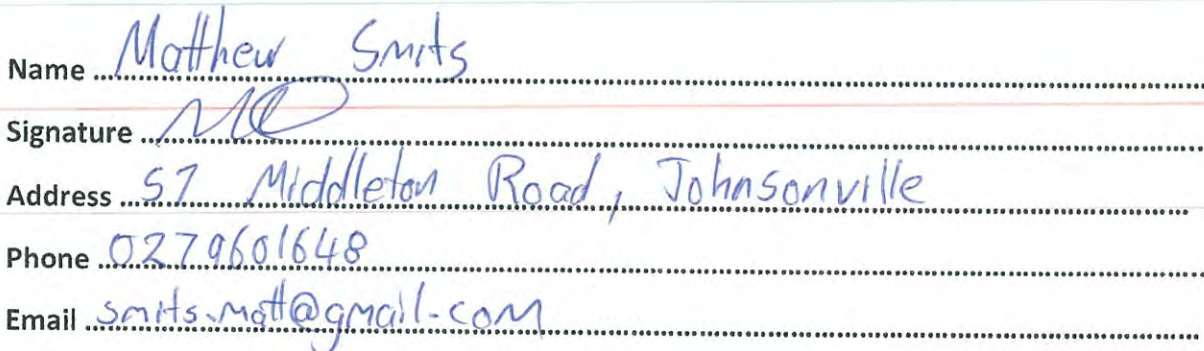 Name Matthew Smits
Signature
Address 57 Middleton Road, Johnsonville
Phone 0279601648
Email smits.matt@gmail.com